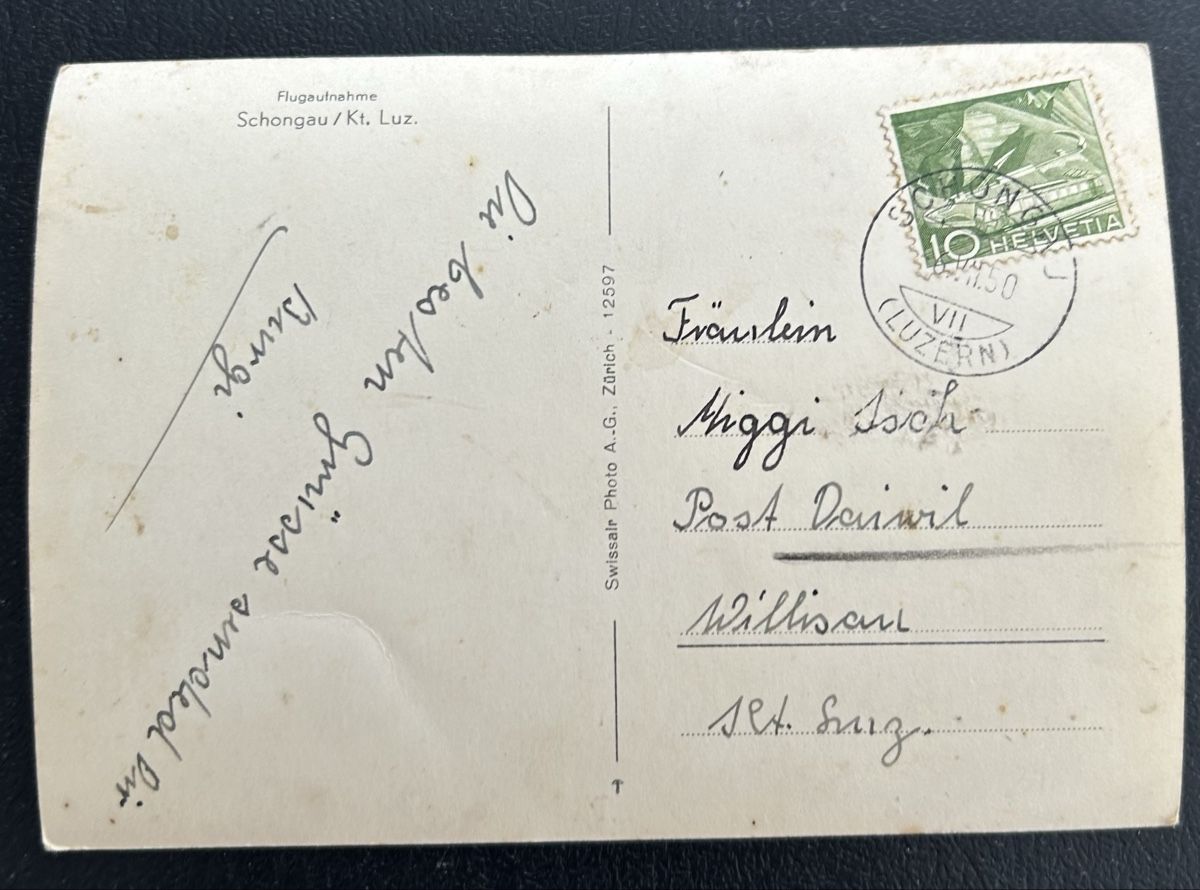 Flugaufnahme
Schongau / Kt. Luz.
Die besten
Grüsse sendet Dir
Swissair Photo A.-G., Zürich - 12597
10 HELVETIA
SCHONGAU
VII.50
VII
(LUZERN)
Fräulein
Miggi Isch
Post Daiwil
Willisau
Kt. Luz.